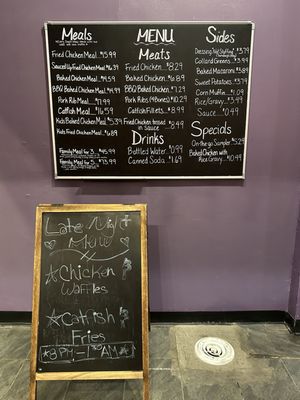 Meals
Fried Chicken Meal $15.99
Sauced Up Fried Chicken Meal
Baked Chicken Meal $14.59
BBQ Baked Chicken Meal $14.99
Pork Rib Meal $17.99
Catfish Meal $16.59
Kids Baked Chicken Meal $5.39
Kids Fried Chicken Meal $6.89
Family Meal for 3 $45.99
Family Meal for 5 $73.59
MENU
Meats
Fried Chicken $8.29
Baked Chicken $6.89
BBQ Chicken $7.29
Pork Ribs (4 Bones) $10.29
Catfish Fillets $8.99
Fried Chicken tossed in Sauce $8.99
Drinks
Bottled Water $0.99
Canned Soda $1.69
Sides
Collard Greens $3.99
Baked Macaroni $3.89
Sweet Potatoes $3.79
Corn Muffin $1.09
Rice/Gravy $3.49
Sauce
Specials
On-the-go Sampler $5.29
Baked Chicken with
Rice Gravy $10.99
Late Night
Menu
Chicken
Waffles
Catfish
Fries
8 PM - 1:30 AM